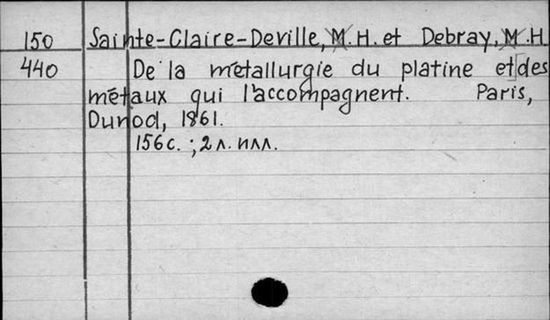 150 Sainte-Claire-Deville, M. H. et Debray, M. H.
440 De la métallurgie du platine et des
métaux qui l'accompagnent. Paris,
Dunod, 1861.
156 с. ; 2 л. илл.